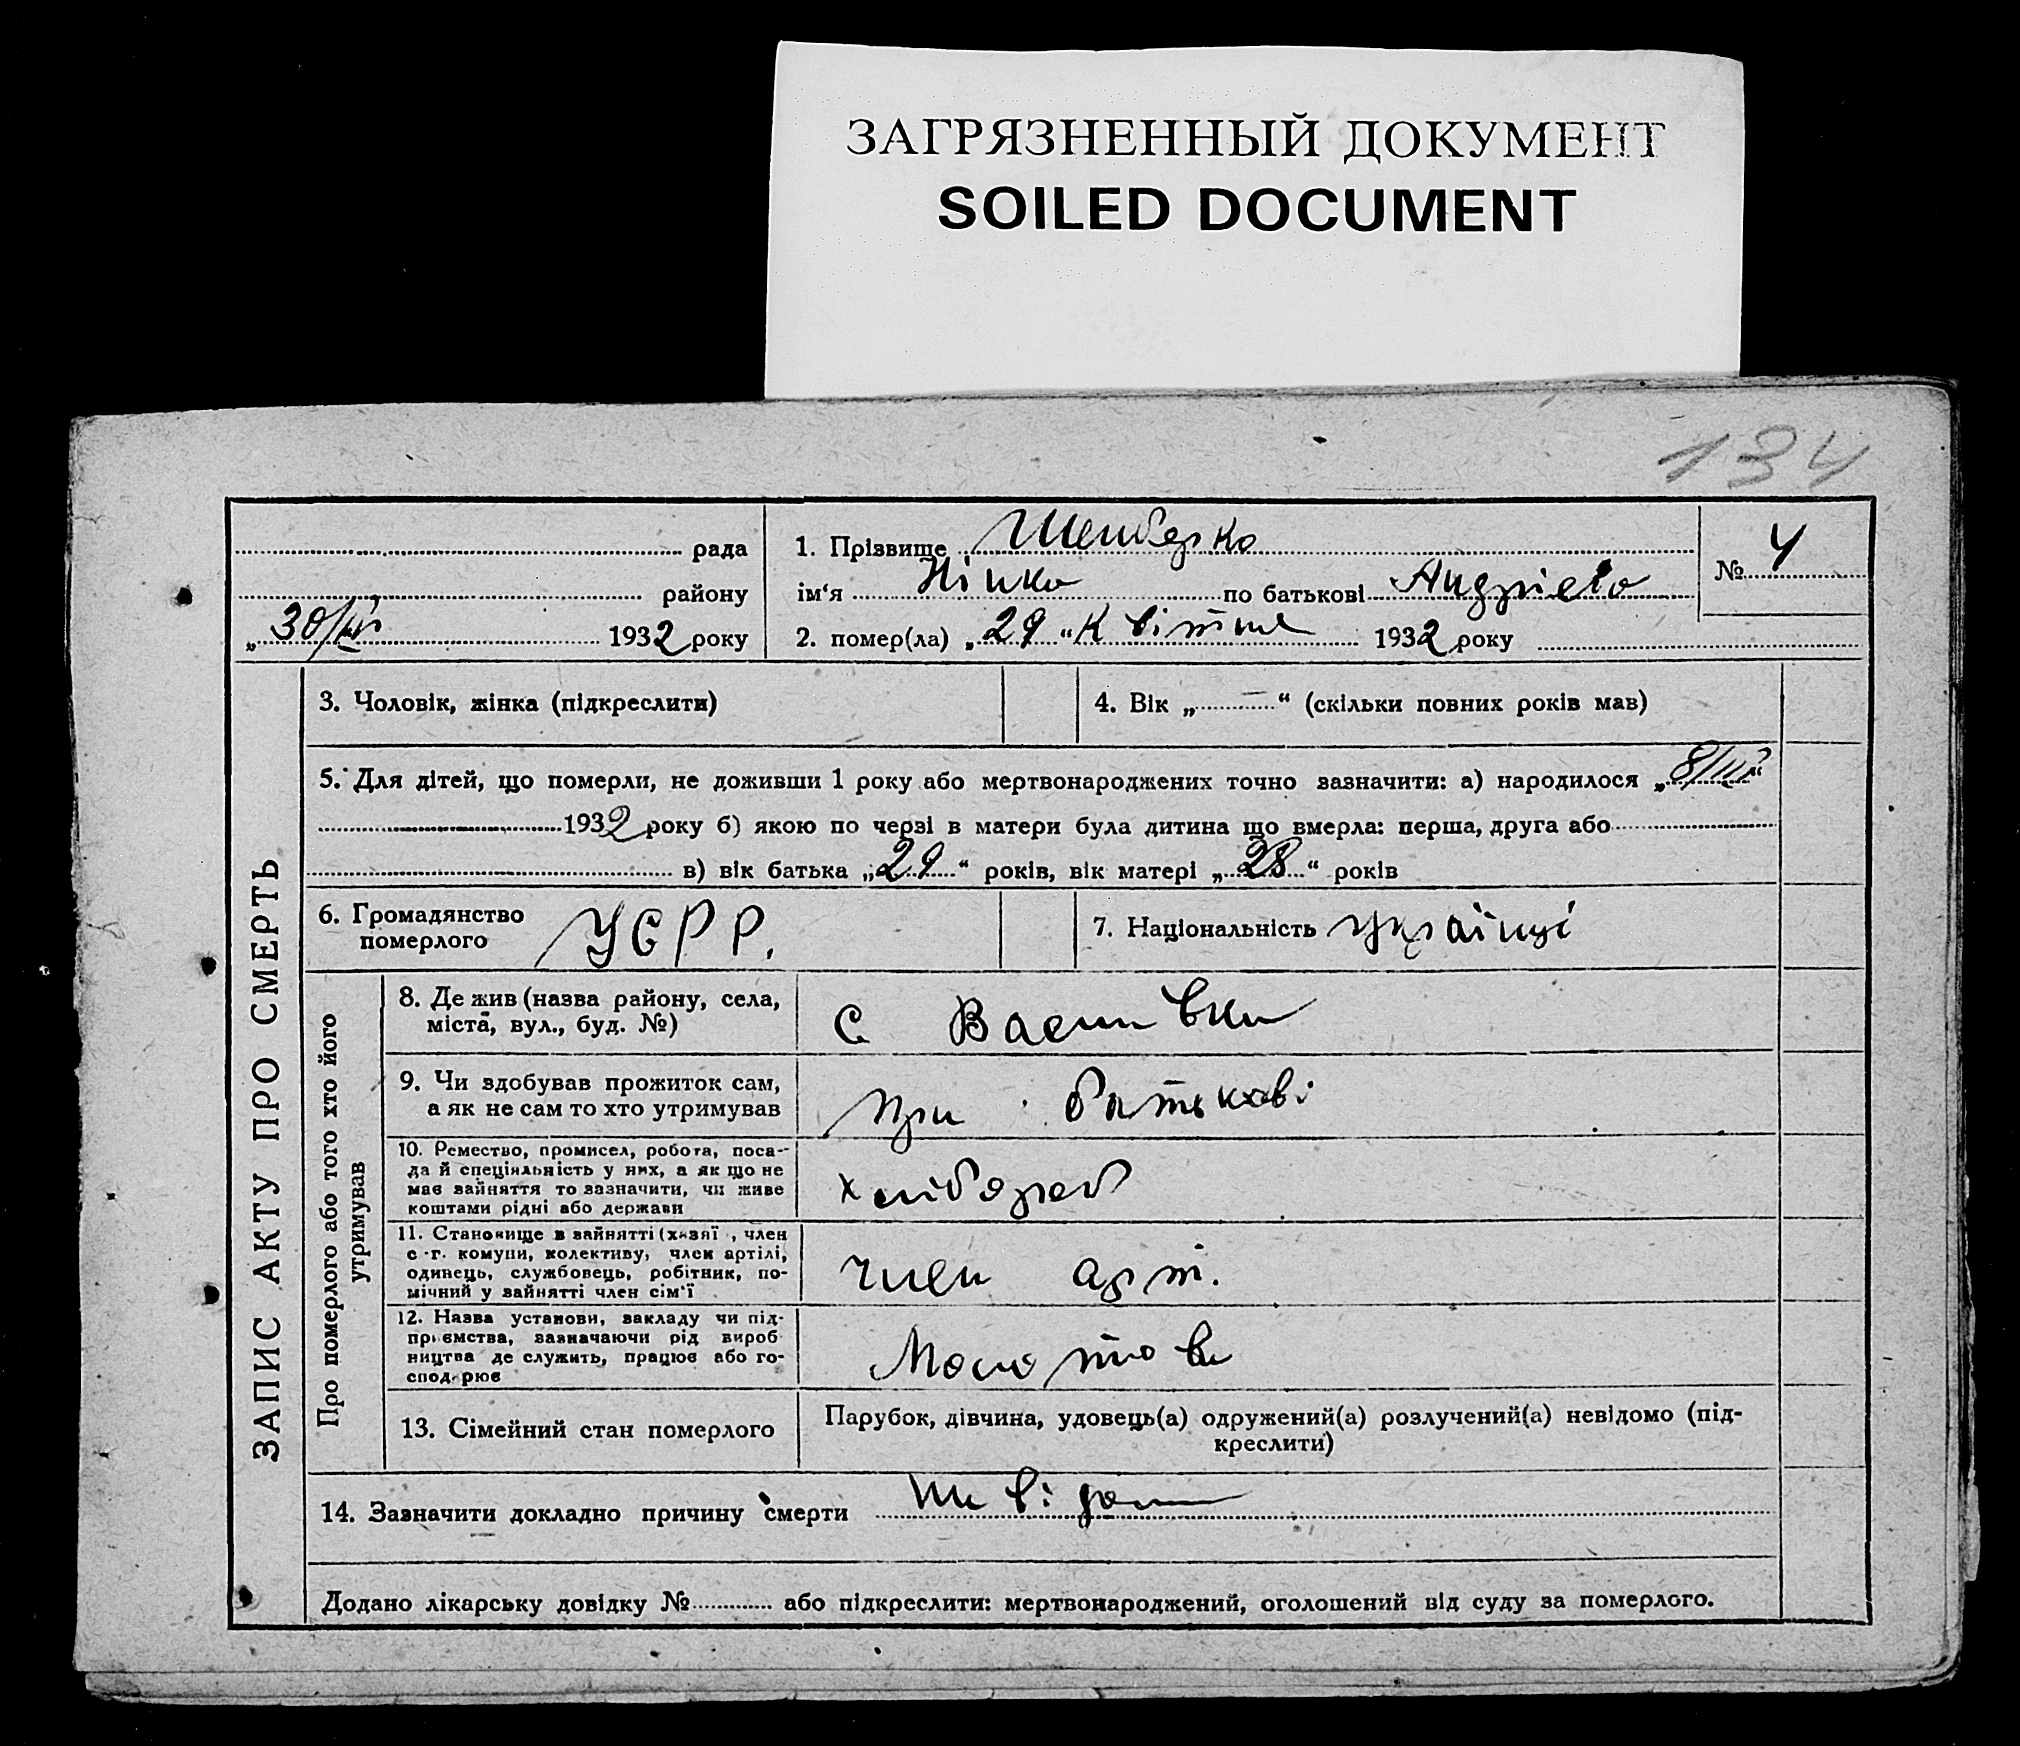 ЗАГРЯЗНЕННЫЙ ДОКУМЕНТ
SOILED DOCUMENT
134
рада
району
„30/IV 1932 року
1. Прізвище
ім‘я Нінка по батькові
2. помер(ла) „29“ Квітня 1932 року
№ 4
ЗАПИС АКТУ ПРО СМЕРТЬ
3. Чоловік, жінка (підкреслити)
4. Вік „—“ (скільки повних років мав)
5. Для дітей, що померли, не доживши 1 року або мертвонароджених точно зазначити: а) народилося „8/III“
1932 року б) якою по черзі в матери була дитина що вмерла: перша, друга або
в) вік батька „29“ років, вік матері „28“ років
6. Громадянство
померлого УСРР.
7. Національність україці
Про померлого або того хто його
утримував
8. Де жив (назва району, села,
міста, вул., буд. №)
с Василівки
9. Чи здобував прожиток сам,
а як не сам то хто утримував
при батькові
10. Ремество, промисел, робота, поса-
да й спеціяльність у них, а як що не
має зайняття то зазначити, чи живе
коштами рідні або держави
хлібороб
11. Становище в зайнятті (хазяї , член
с.-г. комуни, колективу, член артілі,
одинець, службовець, робітник, по-
мічний у зайнятті член сім‘ї
член арт.
12. Назва установи, закладу чи під-
приємства, зазначаючи рід вироб
ництва де служить, працює або го-
сподарює
Молотова
13. Сімейний стан померлого
Парубок, дівчина, удовець(а) одружений(а) розлучений(а) невідомо (під-
креслити)
14. Зазначити докладно причину смерти
Додано лікарську довідку № або підкреслити: мертвонароджений, оголошений від суду за померлого.